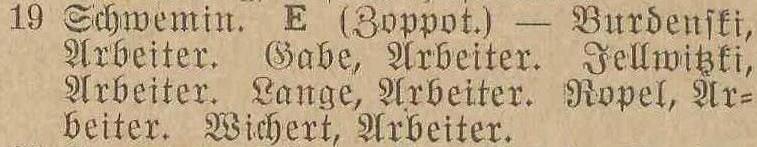 19 Schwemin. E (Zoppot.) — Burdenski,
Arbeiter. Gabe, Arbeiter. Jellwitzki,
Arbeiter. Lange, Arbeiter. Ropel, Ar-
beiter. Wichert, Arbeiter.